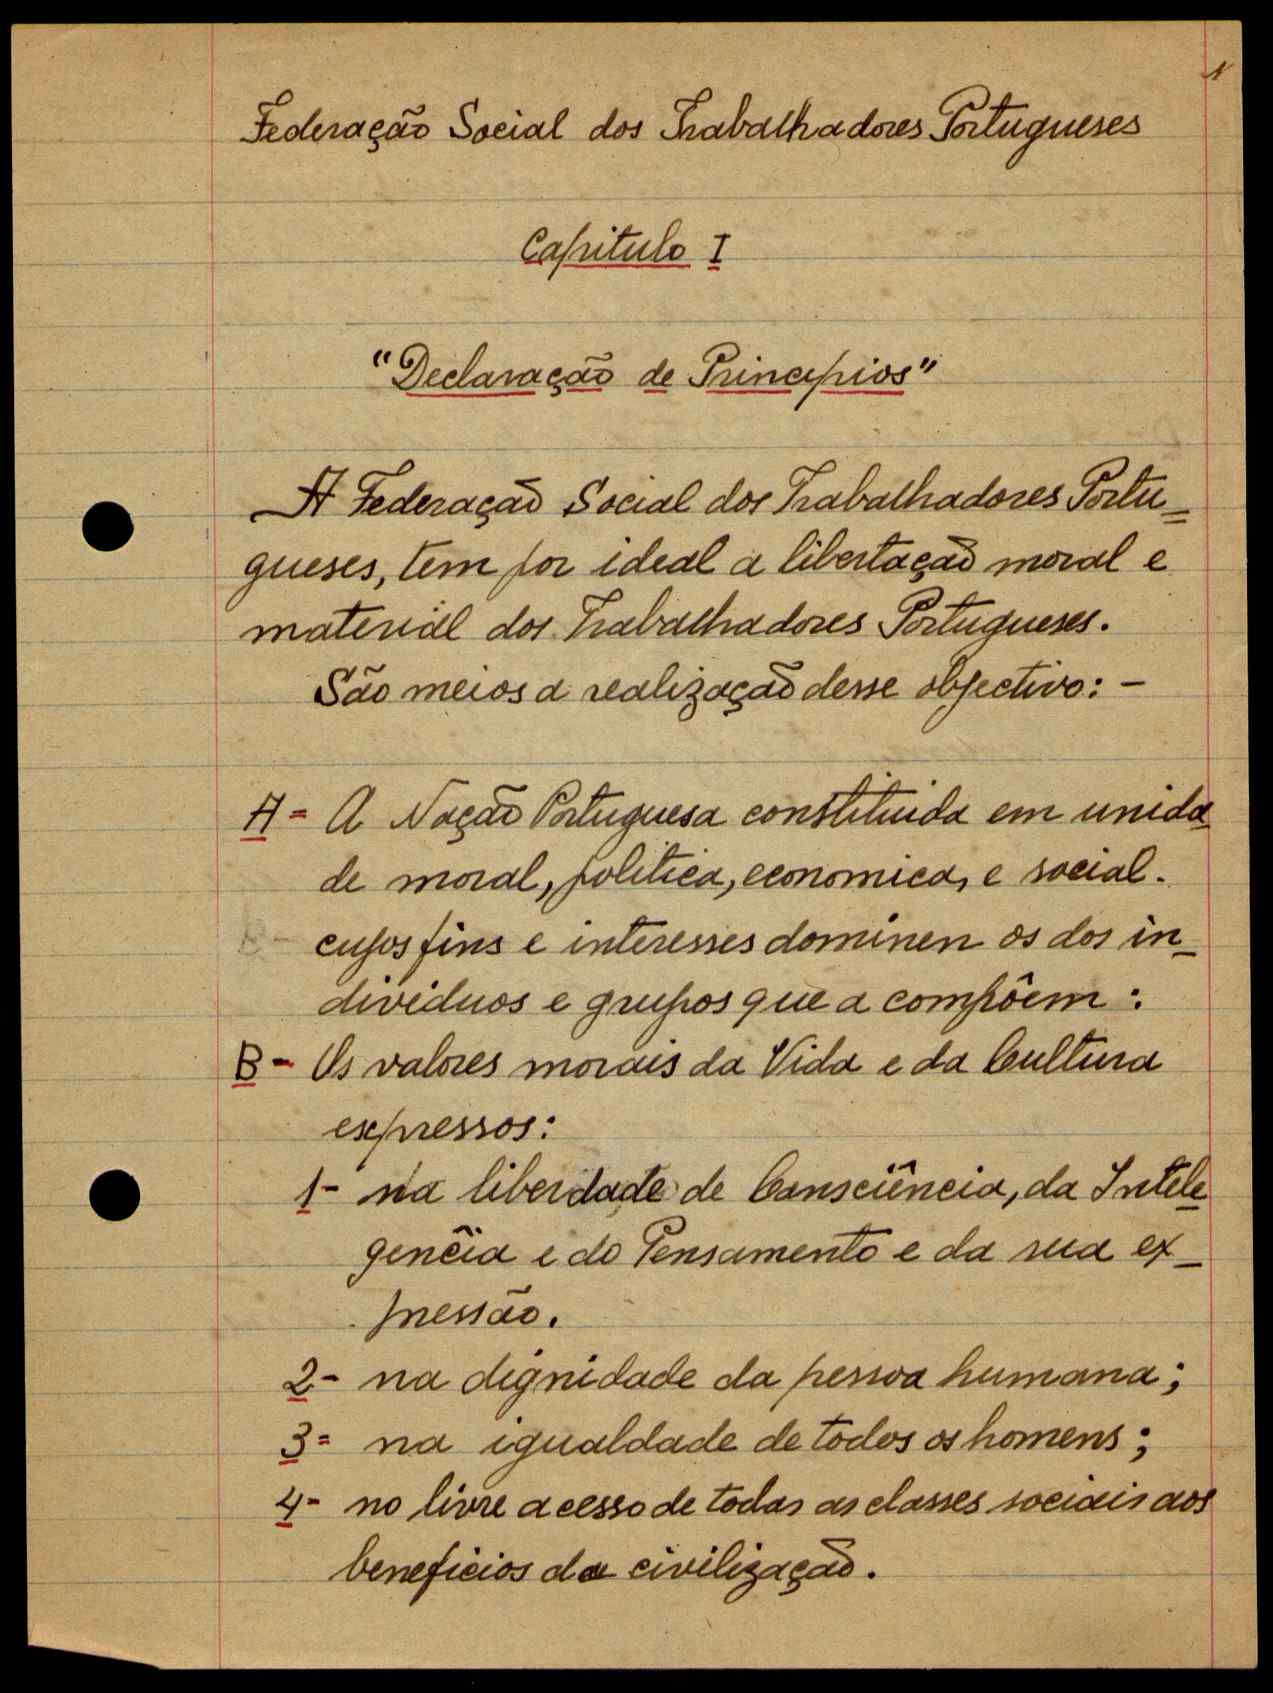 1
Federação Social dos Trabalhadores Portugueses
Capitulo I
"Declaração de Principios"
A Federação Social dos Trabalhadores Portu=
gueses, tem por ideal a libertação moral e
material dos Trabalhadores Portugueses.
São meios a realização desse objectivo: -
A = A Nação Portuguesa constituida em unida_
de moral, politica, economica, e social.
cujos fins e interesses dominen os dos in_
dividuos e grupos que a compôem :
B - Os valores morais da Vida e da Cultura
expressos:
1- na liberdade de Consciência, da Intele_
gência e do Pensamento e da sua ex_
pressão.
2- na dignidade da pessoa humana;
3= na igualdade de todos os homens;
4- no livre acesso de todas as classes sociais aos
beneficios da civilização.